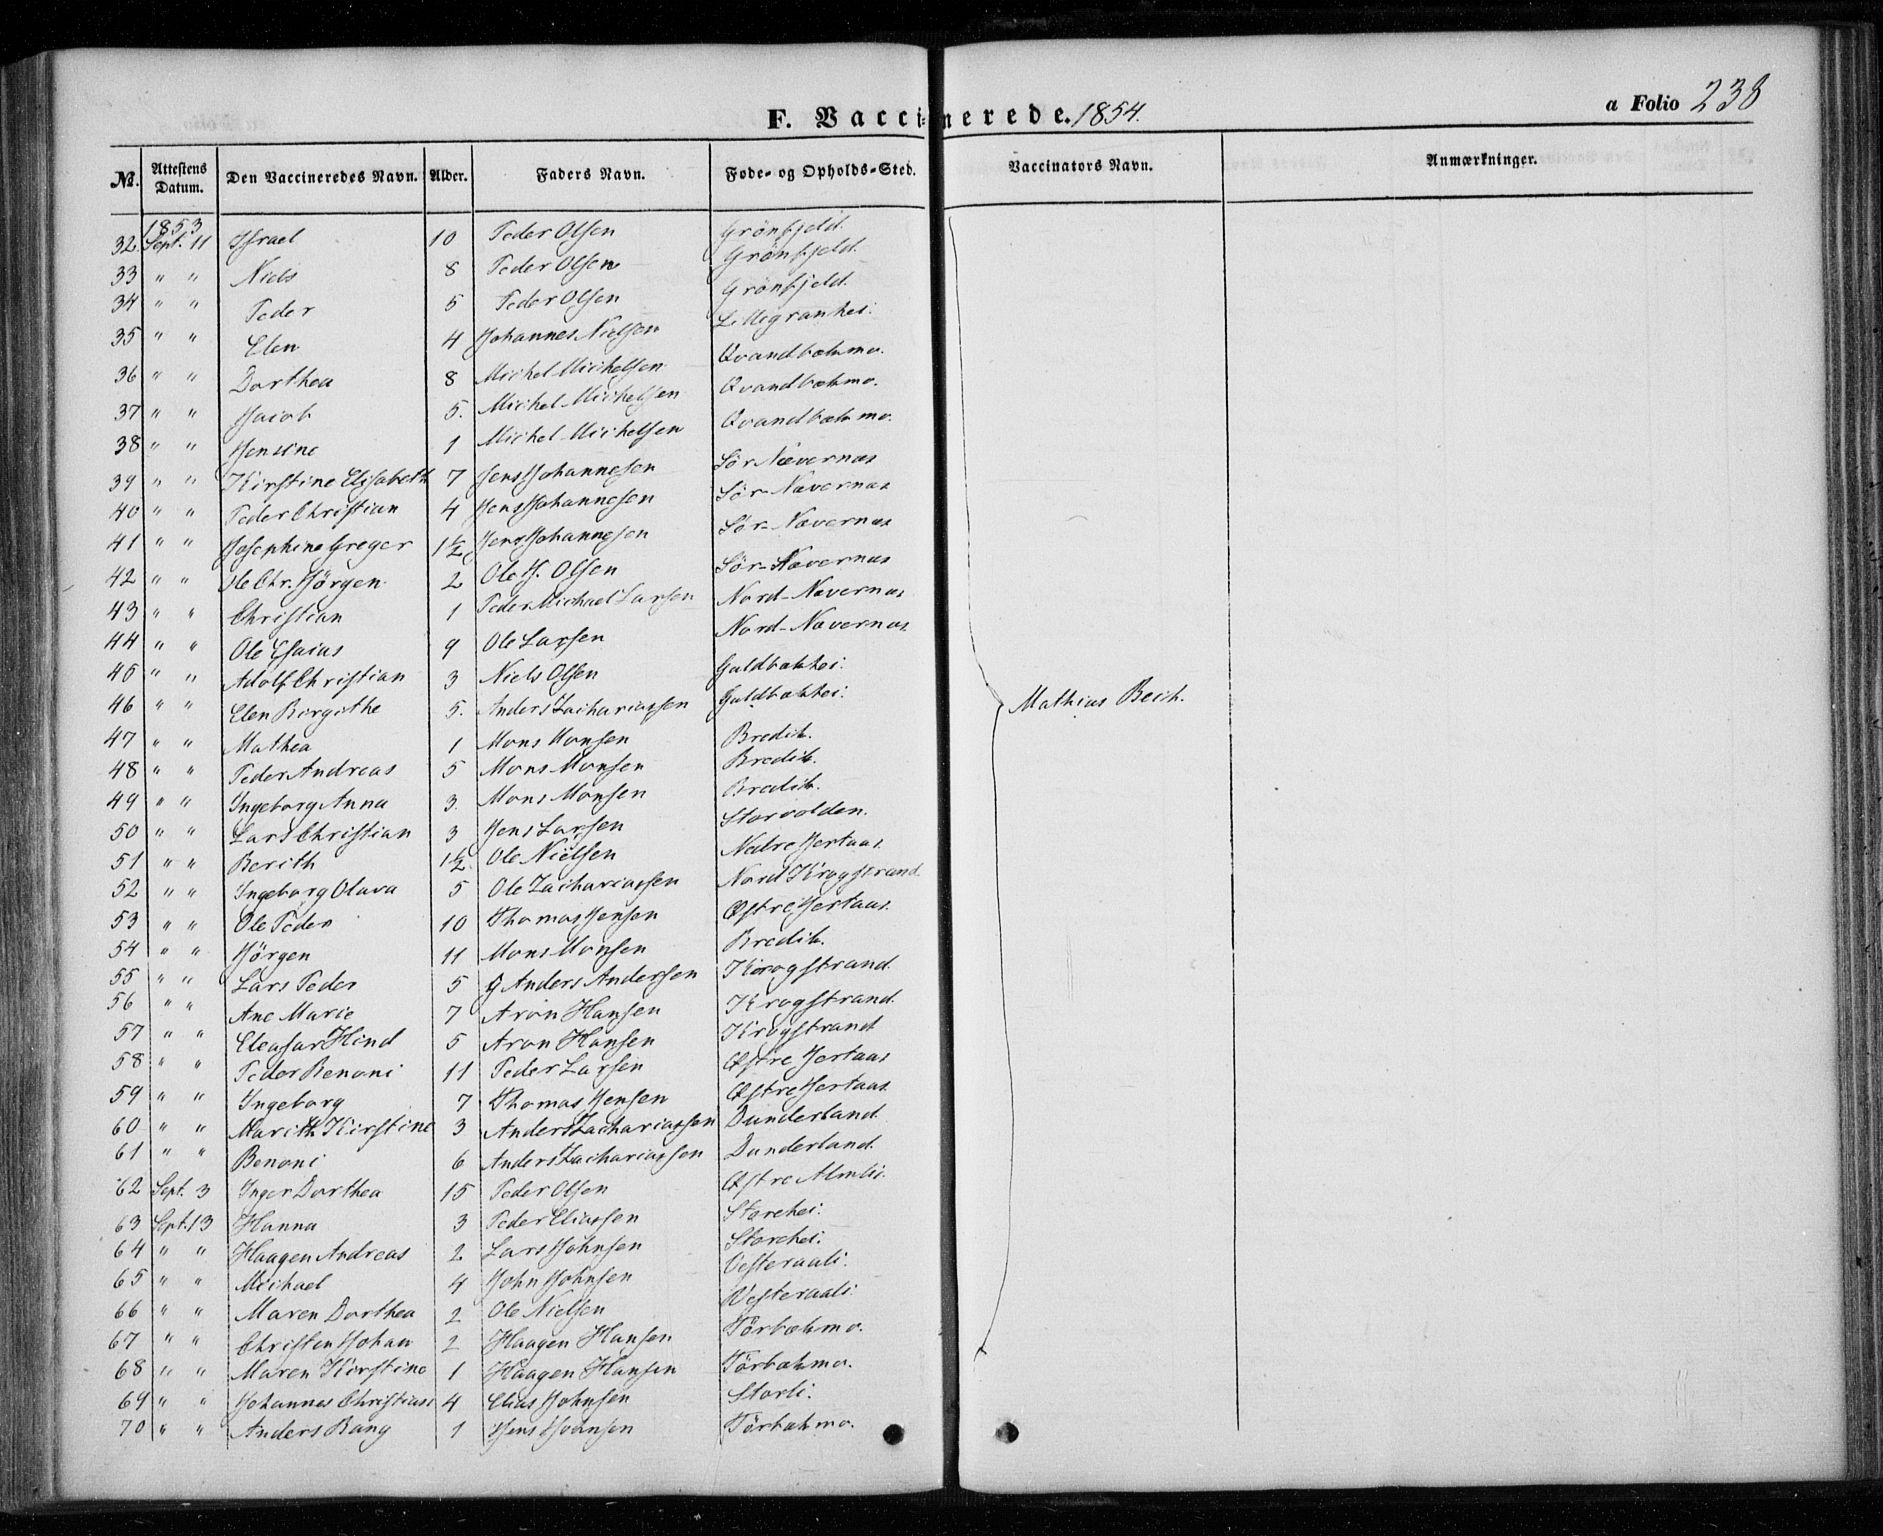 F. Vaccinerede. 1854.
a Folio 238
No. Attestens Datum. Den Vaccineredes Navn. Alder. Faders Navn. Føde- og Opholds-Sted. Vaccinators Navn. Anmærkninger.
1853
32 Sept. 11 Israel 10 Peder Olsen Grönfjeld.
33 " " Niels 8 Peder Olsen Grönfjeld.
34 " " Peder 5 Peder Olsen Grönfjeld.
35 " " Elen 4 Johannes Nielsen Lillegranhei.
36 " " Dorthea 8 Michel Michelsen Qvandbækmo.
37 " " Jacob 5. Michel Michelsen Qvandbækmo.
38 " " Jensine 1 Michel Michelsen Qvandbækmo.
39 " " Kirstine Elisabeth 7 Jens Johannesen Sör Nævernæs
40 " " Peder Christian 4 Jens Johannesen Sör-Nævernæs
41 " " Josephine Greger 1½ Jens Johannesen Sör-Nævernæs
42 " " Ole Chr. Jörgen 2 Ole J. Olsen Sör-Nævernæs
43 " " Christian 1 Peder Michael Larsen Nord-Nævernæs
44 " " Ole Esaias 9 Ole Larsen Nord-Nævernæs
45 " " Adolf Christian 3 Niels Olsen Guldbækhei.
46 " " Elen Birgithe 5. Anders Zachariassen Guldbækhei.
47 " " Mathea 1 Mons Monsen Bredik.
48 " " Peder Andreas 5 Mons Monsen Bredik.
49 " " Ingeborg Anna 3. Mons Monsen Bredik.
50 " " Lars Christian 3 Jens Larsen Storvolden.
51 " " Berith 1½ Ole Nielsen Nedre Hjertaas.
52 " " Ingeborg Olava 5 Ole Zachariassen Nord Krogstrand
53 " " Ole Peder 10 Thomas Jensen Østre Hjertaas.
54 " " Jörgen 11 Mons Monsen Bredik.
55 " " Lars Peder 5 Anders Andersen Krogstrand.
56 " " Ane Marie 7 Aron Hansen Krogstrand.
57 " " Eleasar Hind 5 Aron Hansen Krogstrand
58 " " Peder Benoni 11 Peder Larsen Østre Hjertaas
59 " " Ingeborg 7 Thomas Jensen Østre Hjertaas
60 " " Marith Kirstine 3 Anders Zachariassen Dunderland.
61 " " Benoni 6 Anders Zachariassen Dunderland.
62 Sept. 3 Inger Dorthea 15 Peder Olsen Østre Almli.
63 Sept. 13 Hanna 3 Peder Eliassen Storehei.
64 " " Haagen Andreas 2 Lars Johnsen Storehei.
65 " " Michael 4 John Johnsen Vesteraali.
66 " " Maren Dorthea 2 Ole Nielsen Vesteraali
67 " " Christen Johan 2 Haagen Hansen Törbækmo.
68 " " Maren Kirstine 1 Haagen Hansen Törbækmo.
69 " " Johannes Christian 4 Elias Johnsen Storli.
70 " " Anders Bang 1 Jens Hvansen Törbækmo.
Mathias Bech.